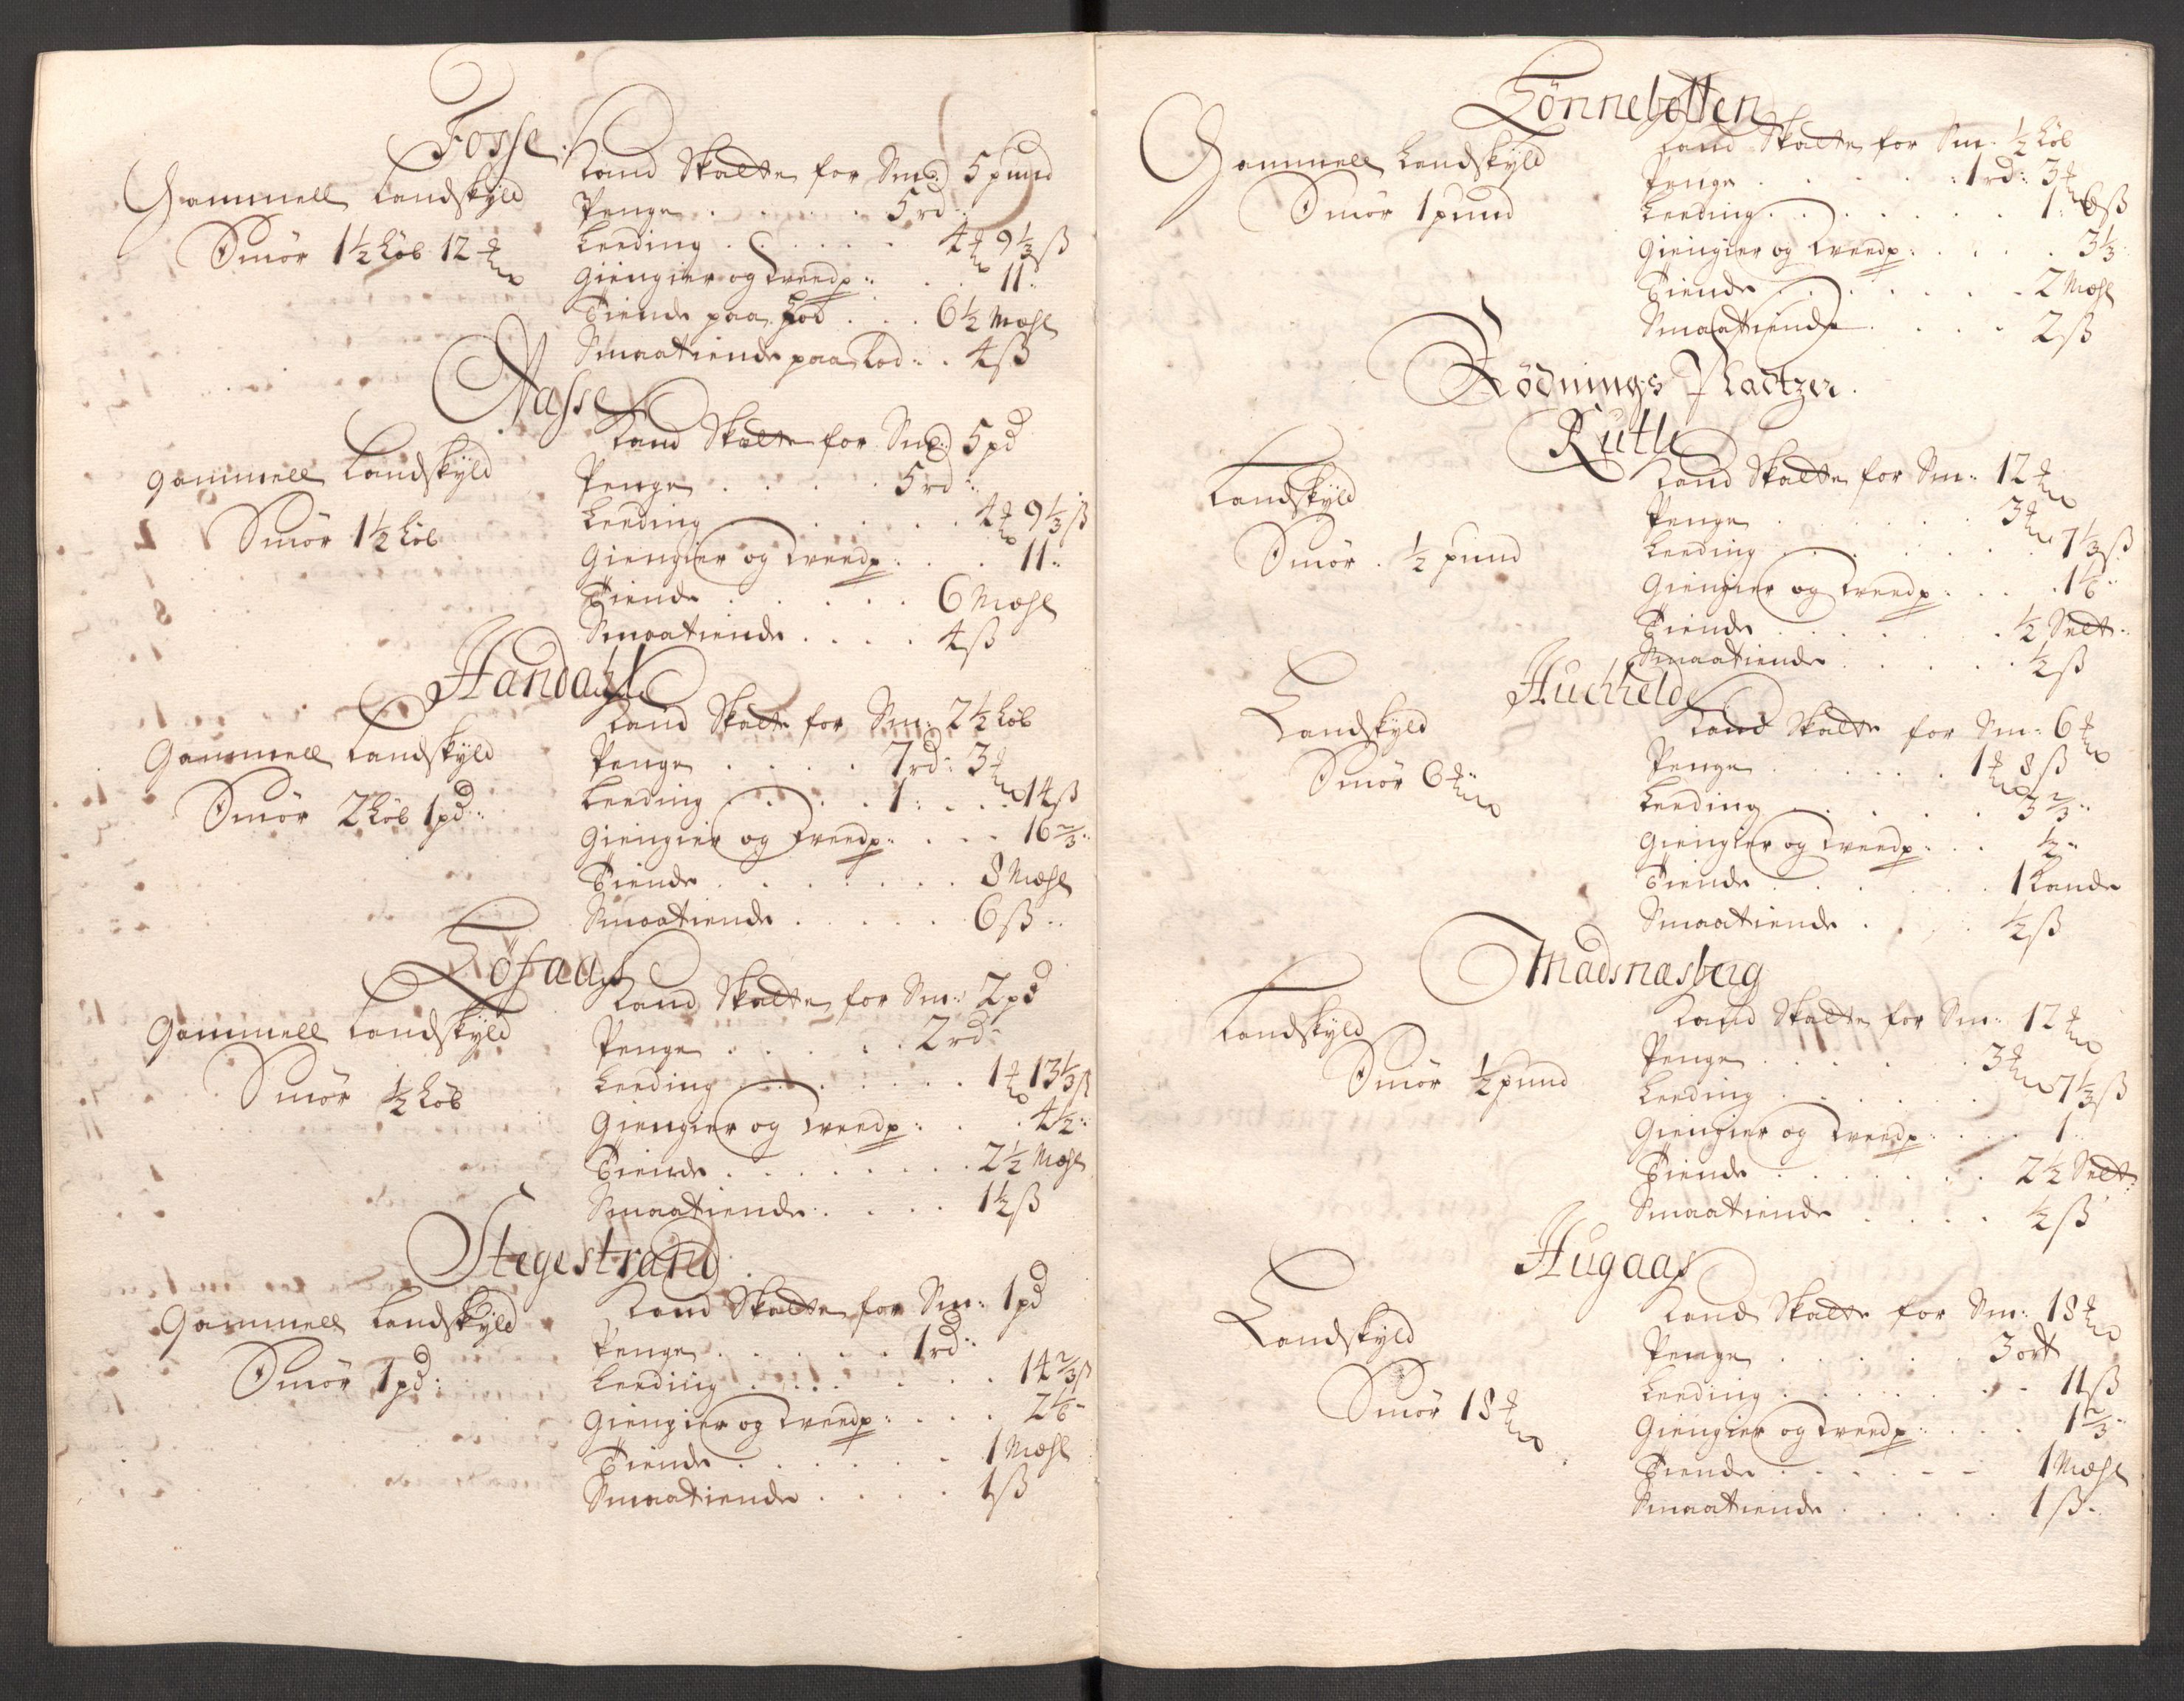 Fosse
Gammell Landskyld
Smör 1½ Löb 12 ℔
Land Skatte for Sm: 5 pund
Penge . . . . 5 rd:
Leeding . . . . 4 ℔ 9⅓ ß
Giengier og Treedp: . . 11:
Tiende paa Lod . . . 6½ Mæhl
Smaatiende paa Lod: . 4 ß
Aasse
gammell Landskyld
Smör 1½ Löb
Land Skatte for Sm: 5 pd
Penge . . . . 5 rd:
Leeding . . . . 4 ℔ 9⅓ ß
Giengier og Treedp: . . 11:
Tiende . . . . . 6 Mæhl
Smaatiende . . . . 4 ß
Handahl
Gammell Landskyld
Smör 2 Löb 1 pd:
Land Skatte for Sm: 2½ Löb
Penge . . . . 7 rd: 3 ℔
Leeding . . . . 1: . . . 14 ß
Giengier og Treedp: . . . 16⅔:
Tiende . . . . . . 8 Mæhl
Smaatiende . . . . . 6 ß:
Löfaas
Gammell Landskyld
Smör ½ Löb
Land Skatte for Sm: 2 pd
Penge . . . . . 2 rd:
Leeding . . . . . 1 ℔ 13⅓ ß
Giengier og Treedp: . . 4½:
Tiende . . . . . . . 2½ Mæhl
Smaatiende . . . . 1½ ß
Stegestrand
Gammell Landskyld
Smör 1 pd:
Land Skatte for Sm: 1 pd
Penge . . . . . 1 rd:
Leeding . . . . . . 14⅔ ß
Giengier og Treedp: . . . 2⅙:
Tiende . . . . . . 1 Mæhl
Smaatiende . . . . 1 ß
Lönnebotten
Gammell Landskyld
Smör 1 pund
Land Skatte for Sm: ½ Löb
Penge . . . . : 1 rd: 3 ℔
Leeding . . . . . . 1: 6 ß
Giengier og Treedp: . . . . 3⅓
Tiende . . . . . . 2 Mæhl
Smaatiende . . . . 2 ß
Rödnings Pladtzer.
Rutle
Landskyld
Smör . ½ pund
Land Skatte for Sm: 12 ℔
Penge . . . . . 3 ℔
Leeding . . . . . . 7⅓ ß
Giengier og Treedp: . . . 1⅙:
Tiende . . . . . . ½ Selt:
Smaatiende . . . . . ½ ß
Huchelde
Landskyld
Smör 6 ℔
Land Skatte for Sm: 6 ℔
Penge . . . . . 1 ℔ 8 ß
Leeding . . . . . 3⅔:
Giengier og Treedp: . . . ½:
Tiende . . . . . . 1 Kande
Smaatiende . . . . ½ ß
Madsnæsberg
Landskyld
Smör ½ pund
Land Skatte for Sm: 12 ℔
Penge . . . . . 3 ℔
Leeding . . . . . . 7⅓ ß
Giengier og Treedp: . . . 1:
Tiende . . . . . . 2½ Selt:
Smaatiende . . . . ½ ß
Hugaas
Landskyld
Smör 18 ℔
Land Skatte for Sm: 18 ℔
Penge . . . . . 3 ort
Leeding . . . . . . . 11 ß
Giengier og Treedp: . . . . 1⅔:
Tiende . . . . . . 1 Mæhl
Smaatiende . . . . . 1 ß: